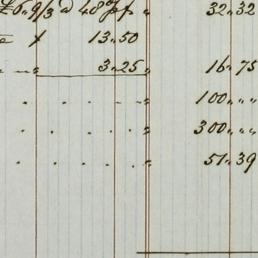 £6. 9/3 a 48 32.32
13.50
3.25 16.75
100 " "
300 " "
51.39